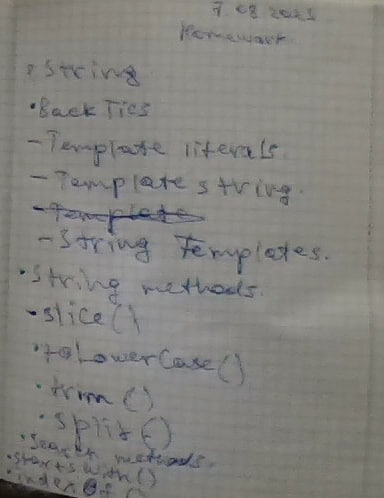 7.08 2023
Homework
• String
• Back Tics
- Template literals.
- Template string.
- Template
- String Templates.
• String methods.
• slice()
• toLowerCase()
• trim()
• split()
• Search methods.
• startswith()
• indexOf()